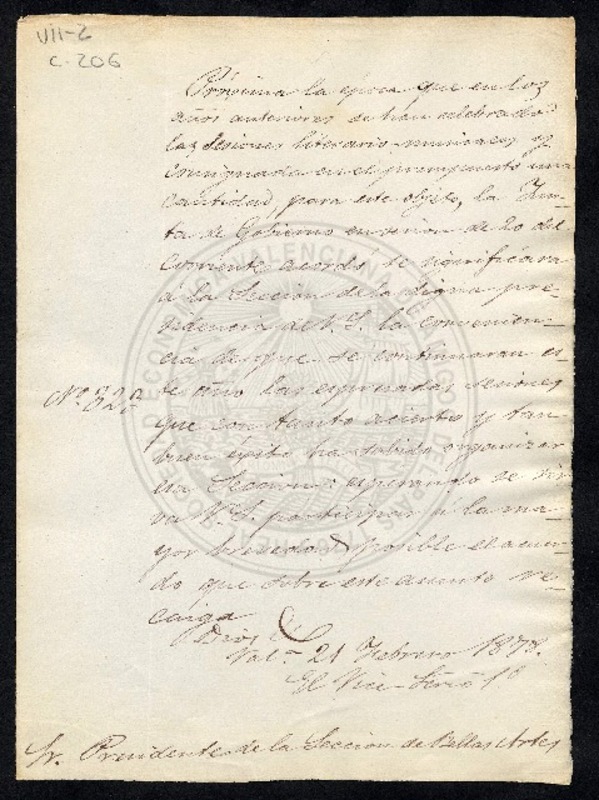 VII-2
C-206
Próxima la época que en los
años anteriores se han celebrado
las sesiones literario-musicales y
consignada en el presupuesto una
cantidad, para este objeto, la Jun-
ta de Gobierno en sesion de 20 del
corriente acordó se significára
á la Seccion de la digna pre-
sidencia de V. S. la convenien-
cia de que se continuaran es-
te año las espresadas sesiones
Nº 322
que con tanto acierto y tan
buen éxito ha sabido organizar
esa Seccion: esperando se sir-
va V. S. participar á la ma-
yor brevedad posible el acuer-
do que sobre este asunto re-
caiga
Dios
Val.ª 21 Febrero 1878.
El Vice-Srio 1º
Sr. Presidente de la Seccion de Bellas Artes